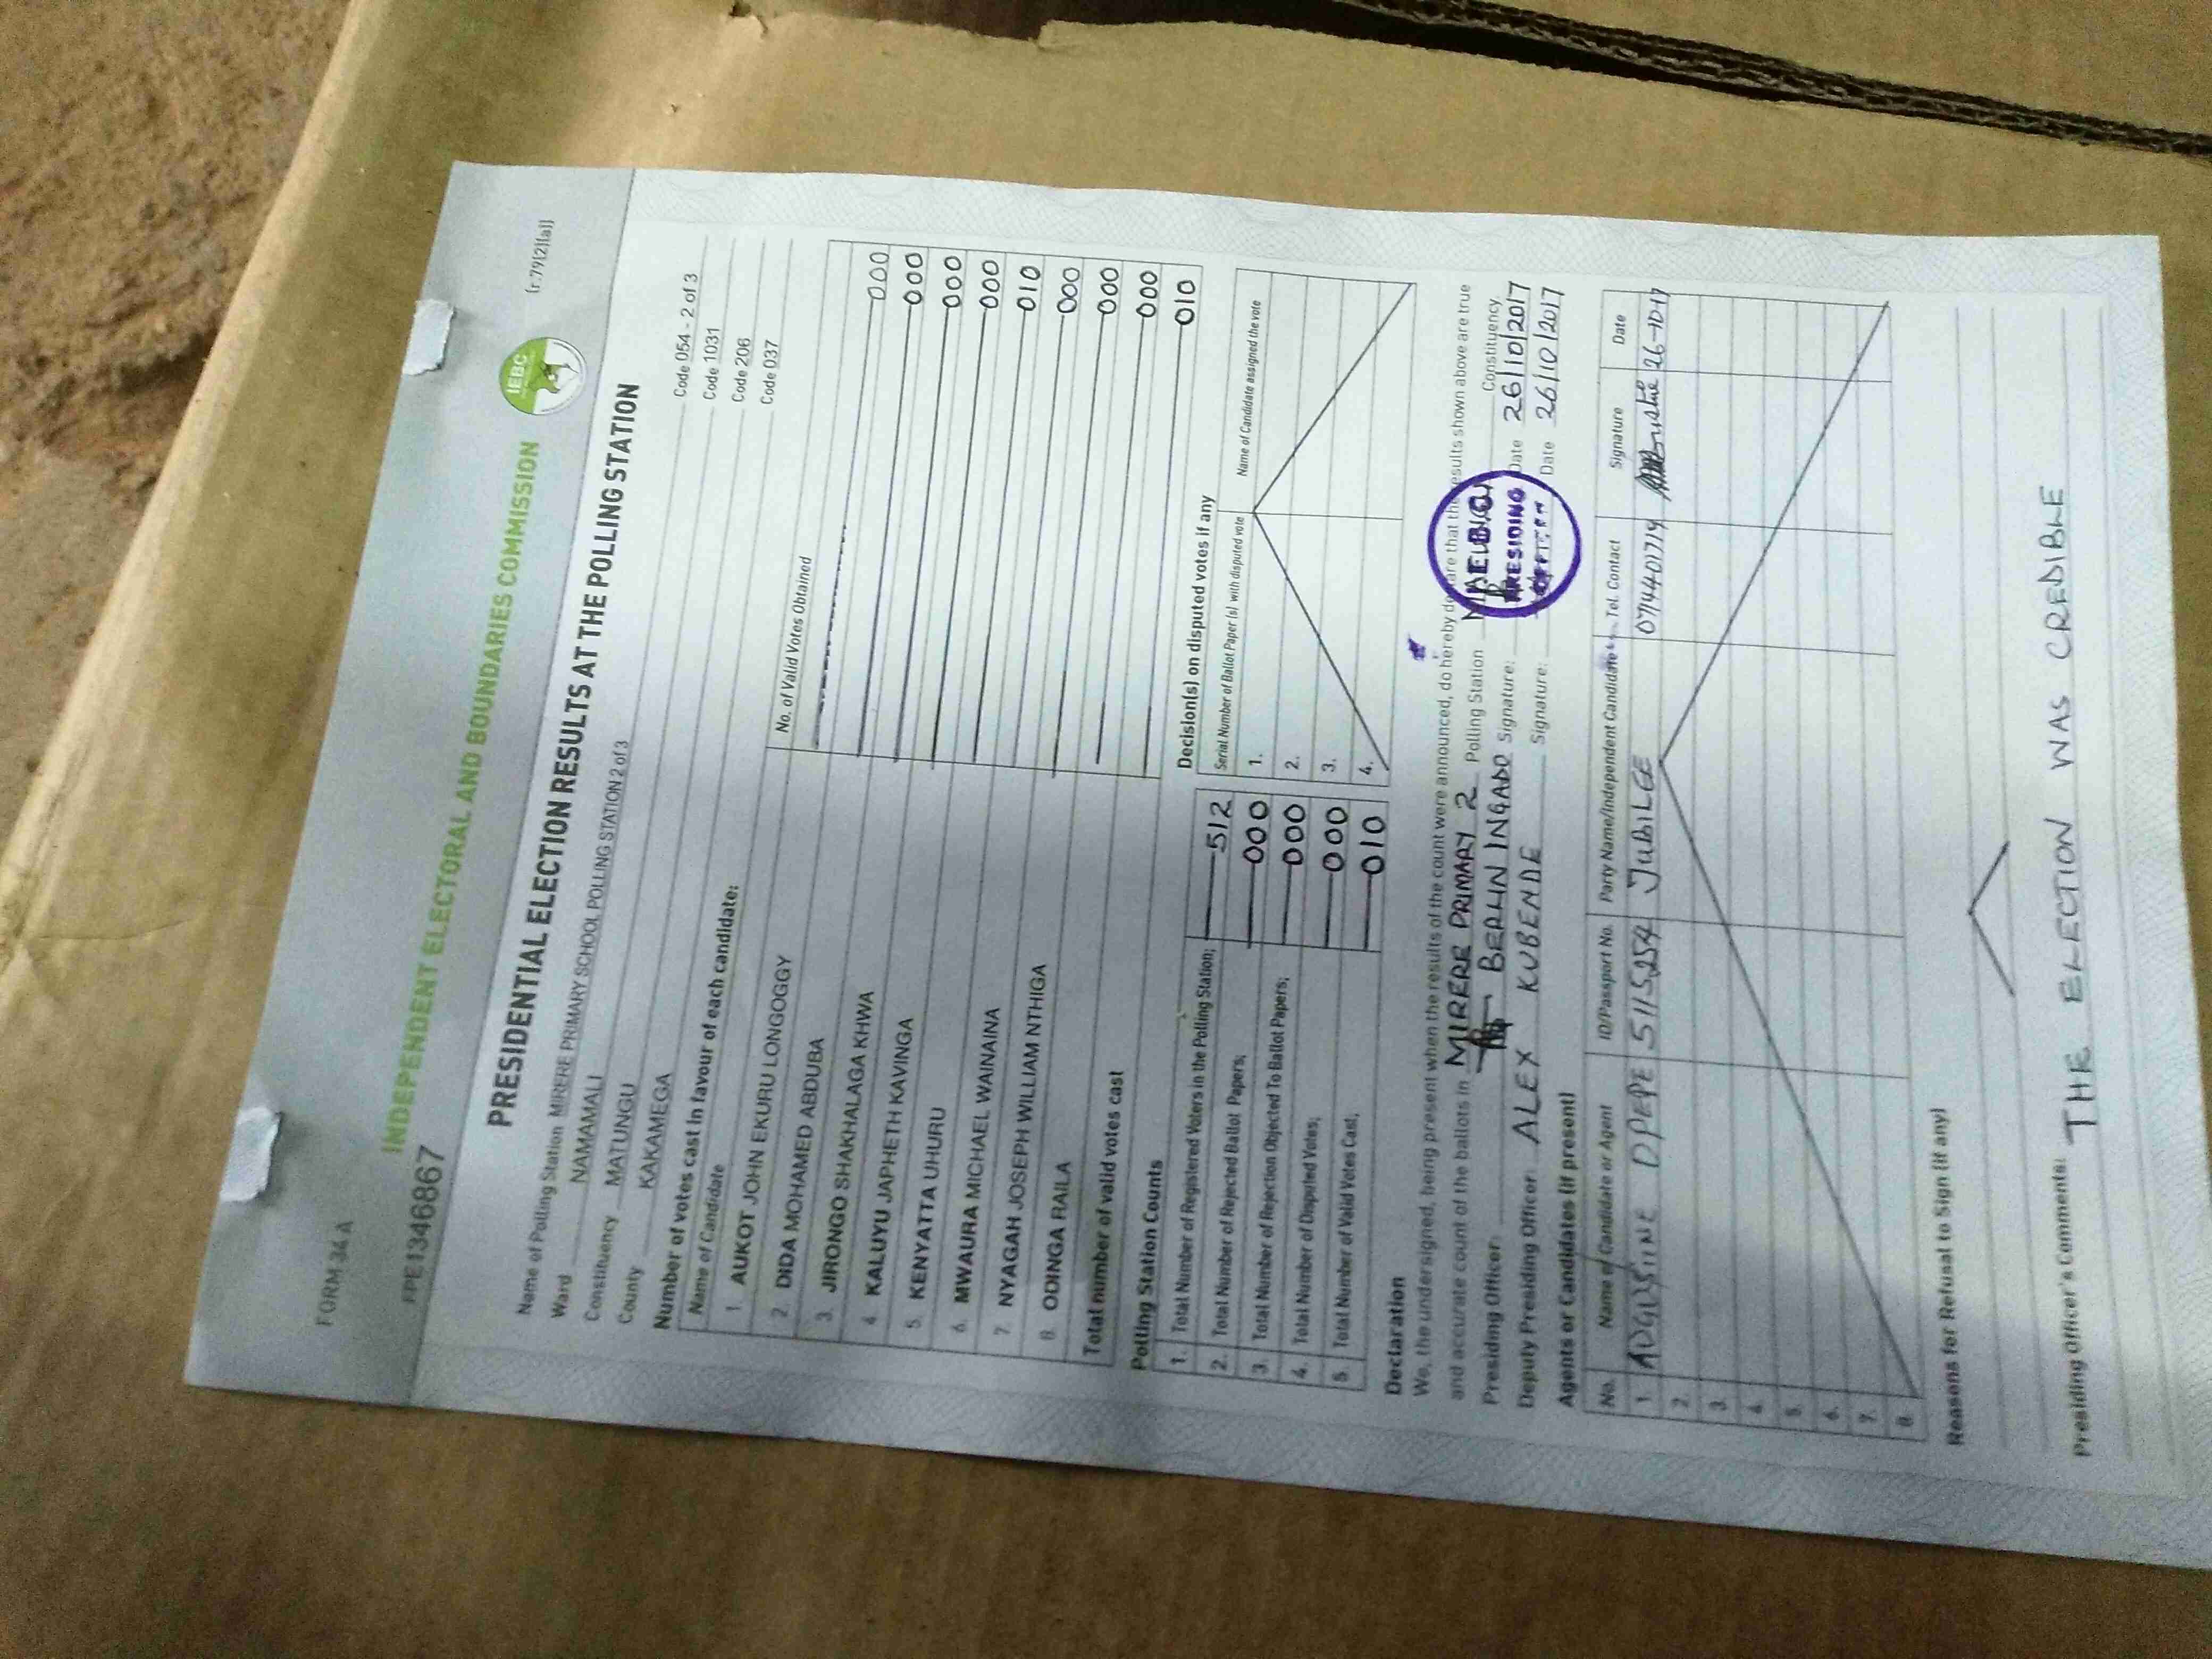 FORM 34 A
(r.79(2)(a))
INDEPENDENT ELECTORAL AND BOUNDARIES COMMISSION
IEBC
PPE1346867
PRESIDENTIAL ELECTION RESULTS AT THE POLLING STATION
Name of Polling Station MIRERE PRIMARY SCHOOL POLLING STATION 2 of 3 Code 054 - 2 of 3
Ward NAMAMALI Code 1031
Constituency MATUNGU Code 206
County KAKAMEGA Code 037
Number of votes cast in favour of each candidate:
Name of Candidate No. of Valid Votes Obtained
1. AUKOT JOHN EKURU LONGOGGY 000
2. DIDA MOHAMED ABDUBA 000
3. JIRONGO SHAKHALAGA KHWA 000
4. KALUYU JAPHETH KAVINGA 000
5. KENYATTA UHURU 010
6. MWAURA MICHAEL WAINAINA 000
7. NYAGAH JOSEPH WILLIAM NTHIGA 000
8. ODINGA RAILA 000
Total number of valid votes cast 010
Polling Station Counts
1. Total Number of Registered Voters in the Polling Station; 512
2. Total Number of Rejected Ballot Papers; 000
3. Total Number of Rejection Objected To Ballot Papers; 000
4. Total Number of Disputed Votes; 000
5. Total Number of Valid Votes Cast; 010
Decision(s) on disputed votes if any
Serial Number of Ballot Paper (s) with disputed vote Name of Candidate assigned the vote
1.
2.
3.
4.
Declaration
We, the undersigned, being present when the results of the count were announced, do hereby declare that the results shown above are true
and accurate count of the ballots in MIRERE PRIMARY 2 Polling Station Constituency.
Presiding Officer: BERLIN INGADO Signature: Date 26/10/2017
PRESIDING
Deputy Presiding Officer: ALEX KUBENDE Signature: Date 26/10/2017
Agents or Candidates (if present)
No. Name of Candidate or Agent ID/Passport No. Party Name/Independent Candidate Tel. Contact Signature Date
1 AUGUSTINE OPEPE 5115254 JUBILEE 0714401719 26-10-17
2.
3.
4.
5.
6.
7.
8.
Reasons for Refusal to Sign (if any)
Presiding Officer's Comments: THE ELECTION WAS CREDIBLE